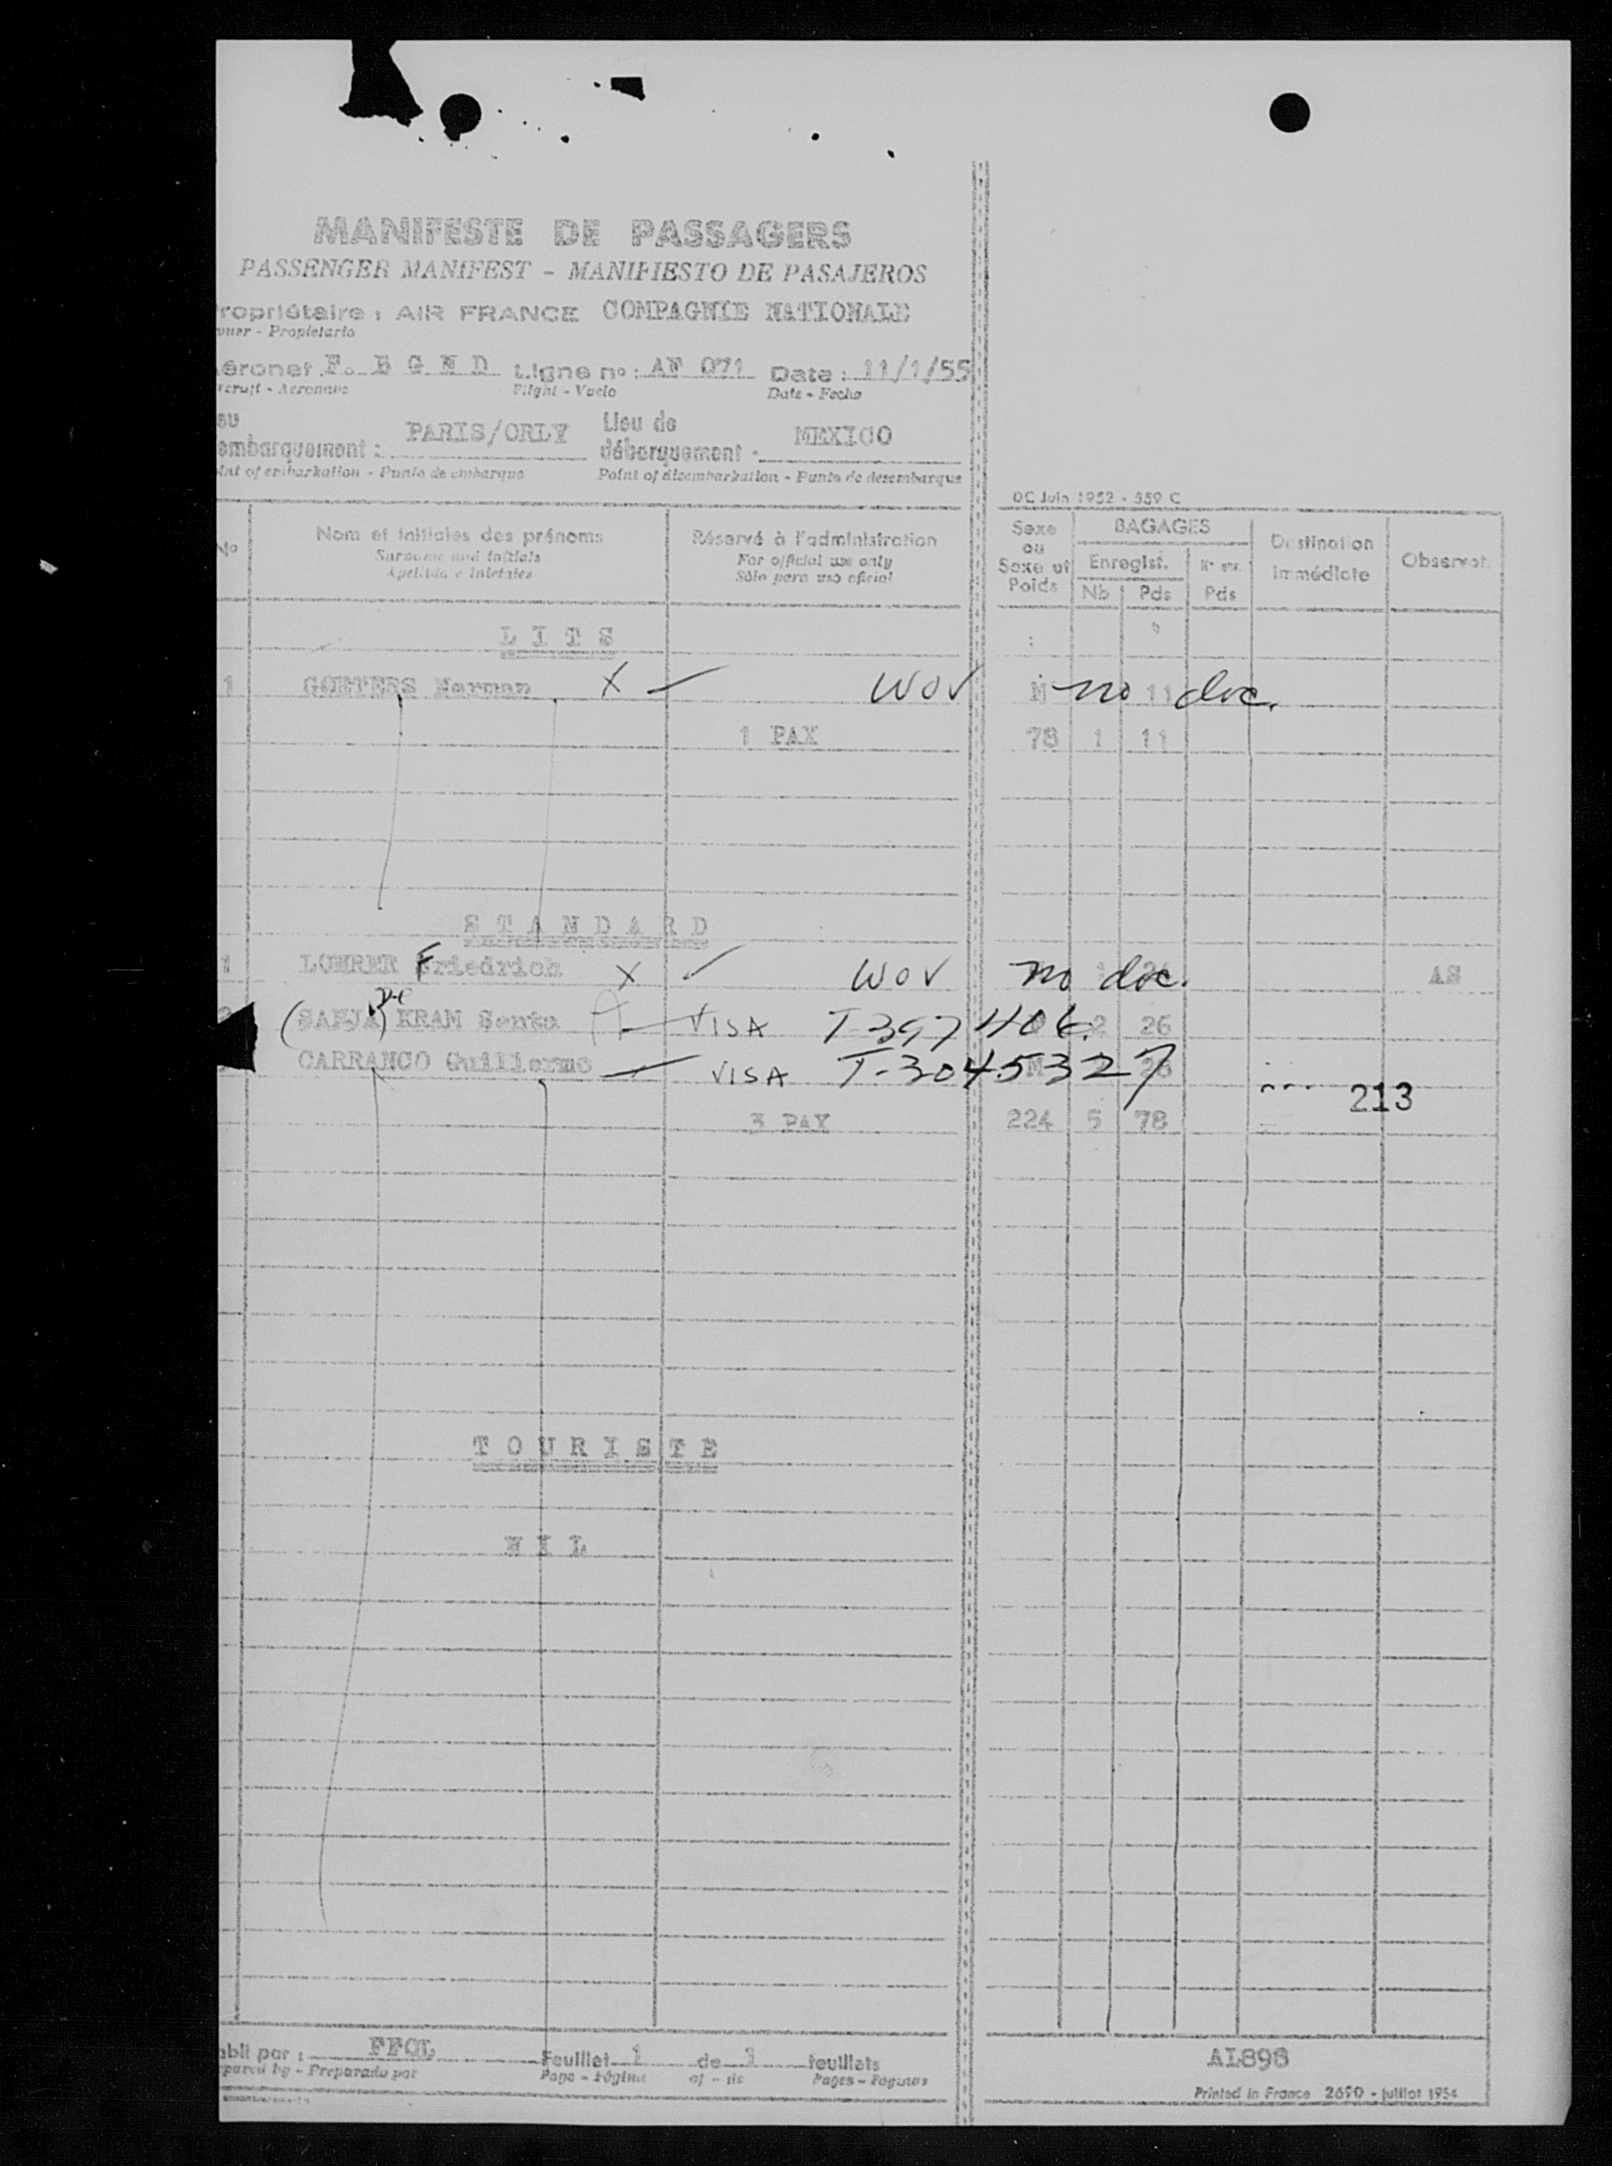 MANIFESTE DE PASSAGERS
PASSENGER MANIFEST - MANIFIESTO DE PASAJEROS
ropriétaire : AIR FRANCE COMPAGNIE NATIONALE
wner - Propietario
éronef F. B G N D Ligne n° : AF 071 Date : 11/1/55
rcraft - Aeronave Flight - Vuelo Date - Fecha
eu
embarquement : PARIS/ORLY Lieu de débarquement - MEXICO
int of embarkation - Punto de embarque Point of disembarkation - Punto de desembarque
DC Juin 1952 - 359 C
N° Nom et initiales des prénoms Réservé à l'administration Sexe ou Sexe et Poids BAGAGES Destination immédiate Observat.
Surname and initials For official use only Enregist.
Apellido e iniciales Sólo para uso oficial Nb Pds Pds
L I T S
1 GOETERS Norman X WOV M no 11 doc.
1 PAX 78 1 11
S T A N D A R D
1 Friedrich X WOV no doc. AS
(SANJA) KRAM Senta VISA T-397406 2 26
CARRANCO Guillermo VISA T-3045327
213
3 PAX 224 5 78
T O U R I S T E
N I L
abli par : FFQL Feuillet 1 de 1 feuillets AL898
pared by - Preparado por Page - Página of - de Pages - Páginas
Printed in France 2690 - juillet 1954